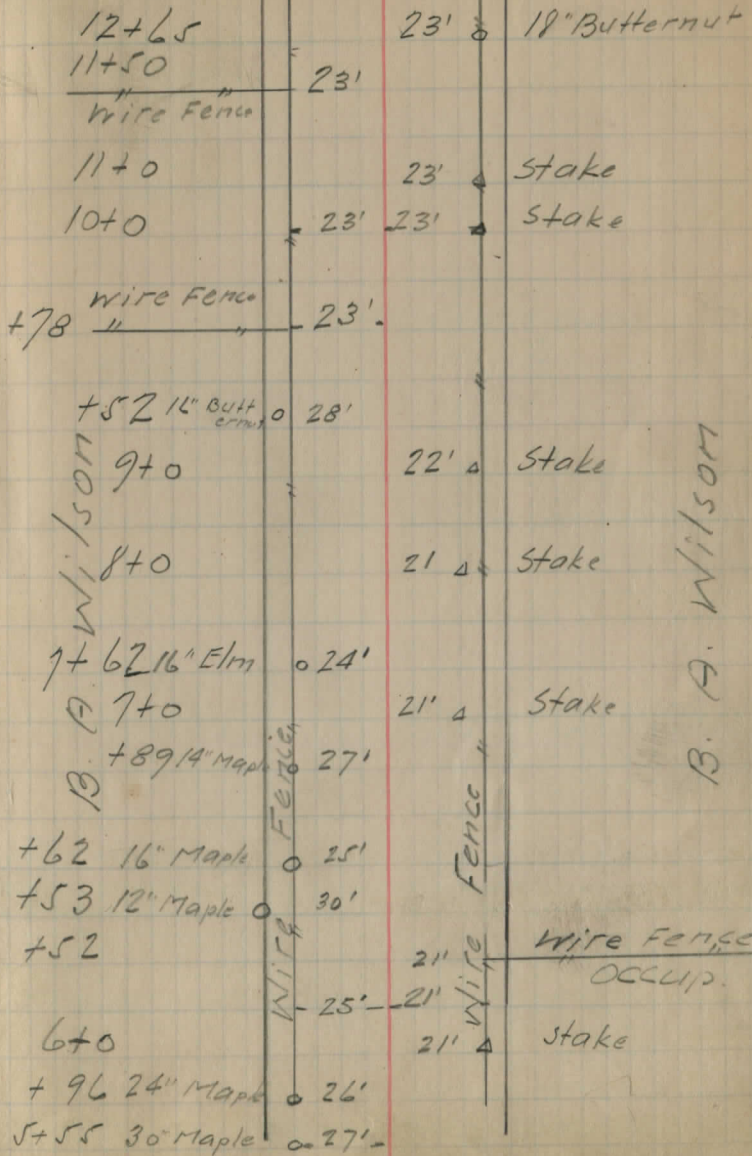 12+65 23' 18" Butternut
11+50 23'
" "
Wire Fence
11+0 23' Stake
10+0 23' 23' Stake
Wire Fence
+78 " " 23'
+52 16" Butternut 28'
9+0 22' Stake
8+0 21 Stake
7+62 16" Elm 24'
7+0 21' Stake
+89 14" Maple 27'
+62 16" Maple 25'
+53 12" Maple 30'
+52 21' Wire Fence
Occup.
25' 21'
6+0 21' Stake
+96 24" Maple 26'
5+55 30" Maple 27'
B. A. Wilson
Wire Fence
Wire Fence
B. A. Wilson